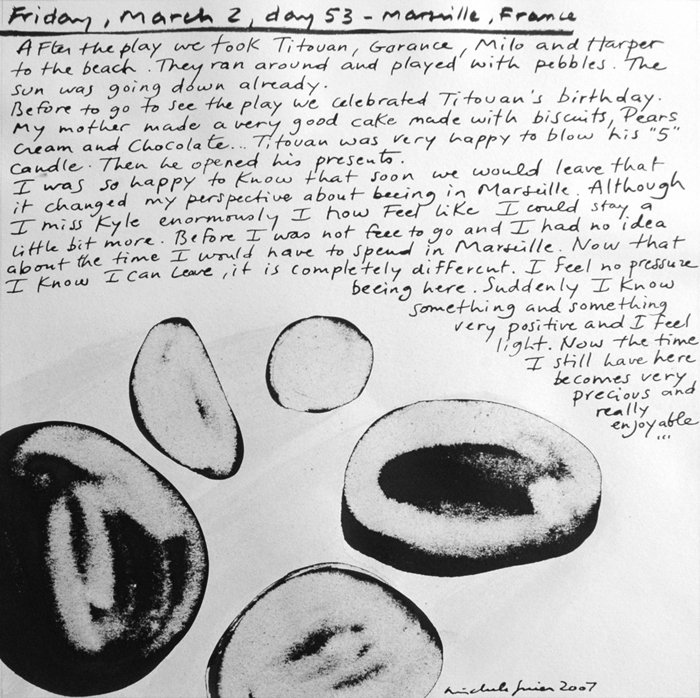 Friday, March 2, day 53 - Marseille, France
After the play we took Titouan, Garance, Milo and Harper
to the beach. They ran around and played with pebbles. The
sun was going down already.
Before to go to see the play we celebrated Titouan's birthday.
My mother made a very good cake made with biscuits, Pears
Cream and Chocolate... Titouan was very happy to blow his "5"
candle. Then he opened his presents.
I was so happy to know that soon we would leave that
it changed my perspective about beeing in Marseille. Although
I miss Kyle enormously I now feel like I could stay a
little bit more. Before I was not free to go and I had no idea
about the time I would have to spend in Marseille. Now that
I know I can leave, it is completely different. I feel no pressure
beeing here. Suddenly I know
something and something
very positive and I feel
light. Now the time
I still have here
becomes very
precious and
really
enjoyable
...
2007